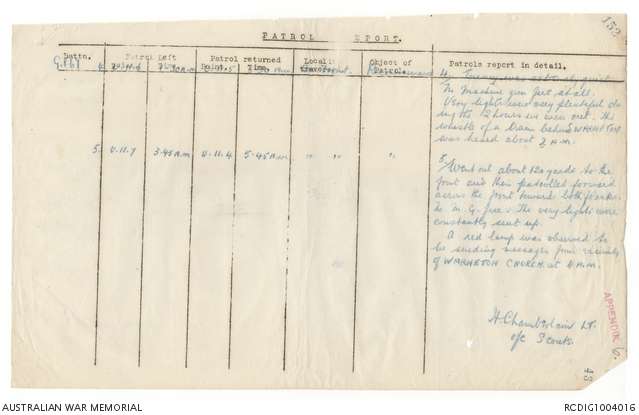 153
PATROL REPORT.
Battn.
Patrol Left
Point. Time.
Patrol returned
Point. Time.
Locality
Object of
Patrol.
Patrols report in detail.
4. Enemy was extremely quiet
No Machine gun fire at all.
Very lights were very plentiful du
ing the 2 hours we were out. The
whistle of a train behind WARNETON
was heard about 3 A.M.
5. U.11.7 3.45 A.M. U.11.4 5.45 A.M. " " "
5
Went out about 120 yards to the
front and then patrolled forward
across the front toward both flanks.
No M.G. fire. The very lights were
constantly sent up.
A red lamp was observed to
be sending messages from vicinity
of WARNETON CHURCH at 4 A.M.
H. Chamberlain Lt.
o/c Scouts.
APPENDIX 6.
43
AUSTRALIAN WAR MEMORIAL
RCDIG1004016